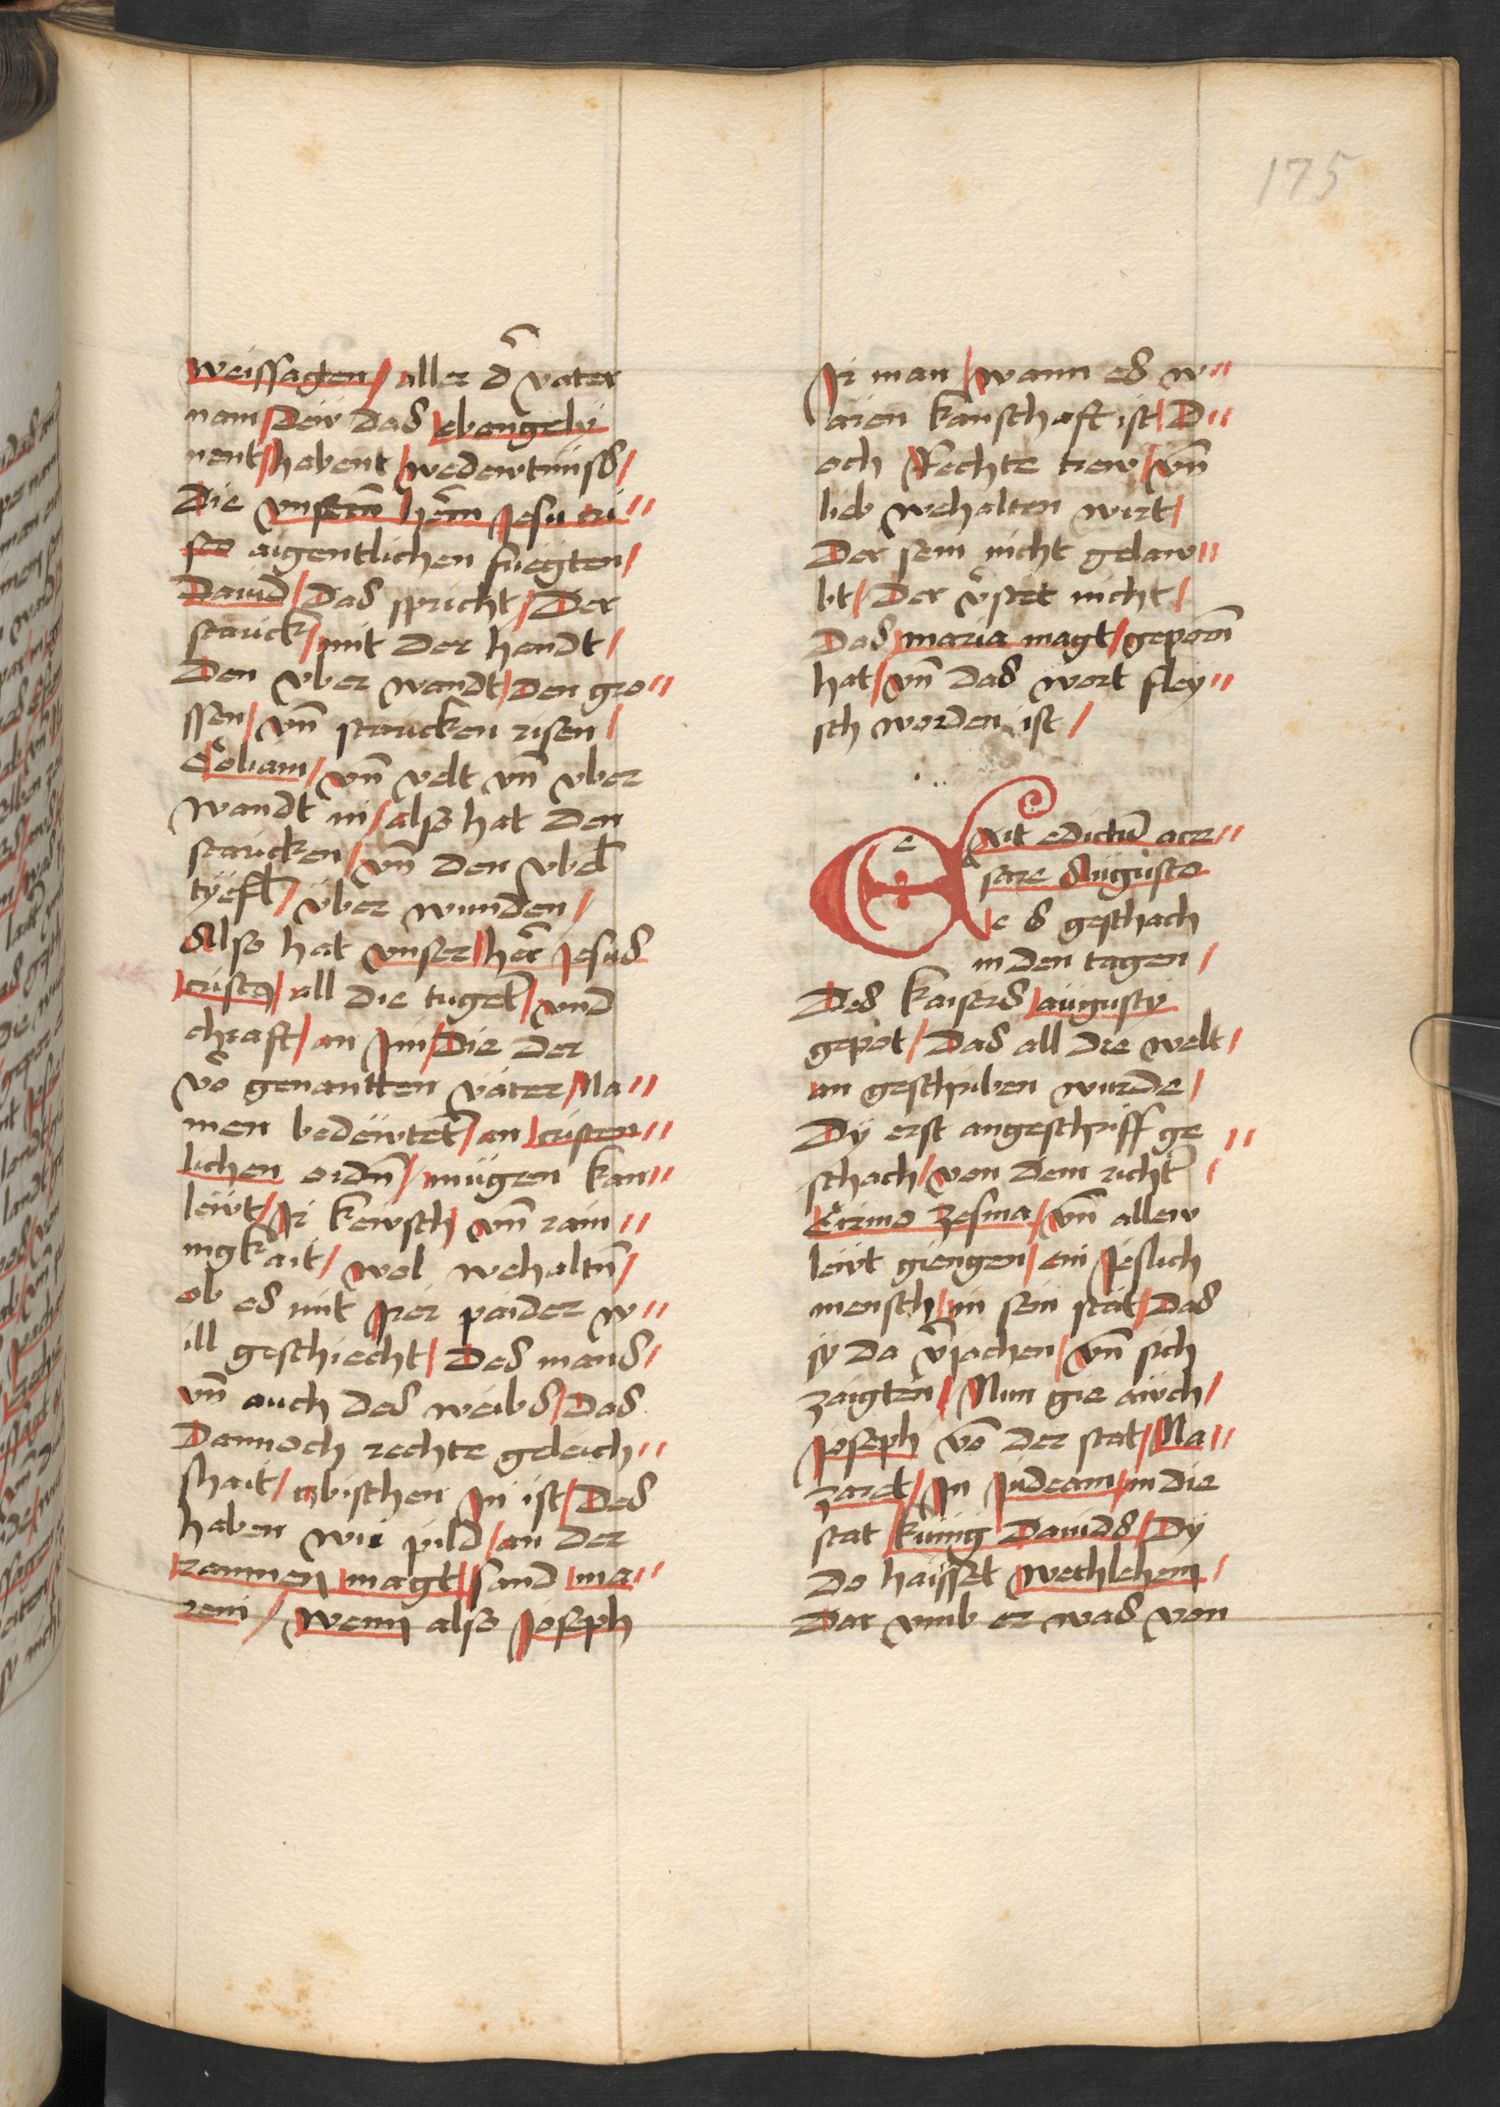 175
weissagen / aller d̄ vater
nam / Deẅ das ebangely
nent / habent / wedewtnüss /
die vnserm̄ herrn Jesu cri〃
sto aigentlichen fuegten /
Dauid / das spricht / Der
starck / mit der handt /
Den vber wandt / Den gro〃
ssen / vnn̄ starcken risen /
Goliam / vnn̄ velt vnn̄ vber
wandt in / also hat den
starcken / vnn̄ den vbel̄
tÿefl̄ / v̈ber wunden /
Also hat vnser / her̄ Jesus
cristꝰ / all die tuget̄ / vnd
chraft / an Jm / Die der
vō genantten väter / Na〃
men bedeẅtet̄ / an cristen〃
lichen ordn̄ / mügen kan〃
leẅt / Jr kewsch / vnn̄ rain〃
ingkait / wol wehaltn̄ /
ob es mit Jrer paider w〃
ill geschiecht / Des mans /
vnn̄ auch des weibs / Das
Dannoch rechte geleich〃
hait / zbischen Jn ist / Des
haben wir pild / an der
rainnen magt / sand ma〃
rein / Wenn also Joseph
Jr man / wann es w〃
aren kanschaft ist / D〃
och Rechte trew / vnn̄
lieb wehalten wirt /
Der sem nicht gelaw〃
bt / Der v̄stet nicht /
Das maria magt / geporn̄
hat / vnn̄ das wort fley〃
sch worden ist /
Exit edictū a ce〃
sare Augusto
e s geschach
in den tagen /
Des kaisers / augusty
gepot / Das all die welt /
an geschriben wurde /
Dÿ erst angeschriff ge〃
schach / von dem richter̄
Cirino zesina / vnn̄ allew
leẅt giengen / ein Jeslich
mensch / in sein stat / Das
sy da v̄jachen / vnn̄ sich
zaigten / Nun gie auch /
Joseph vō der stat / Na〃
zaret / Jn Judeam / in die
stat künig Dauids / Dÿ
do haisset wethlehem /
Dar vmb er was von